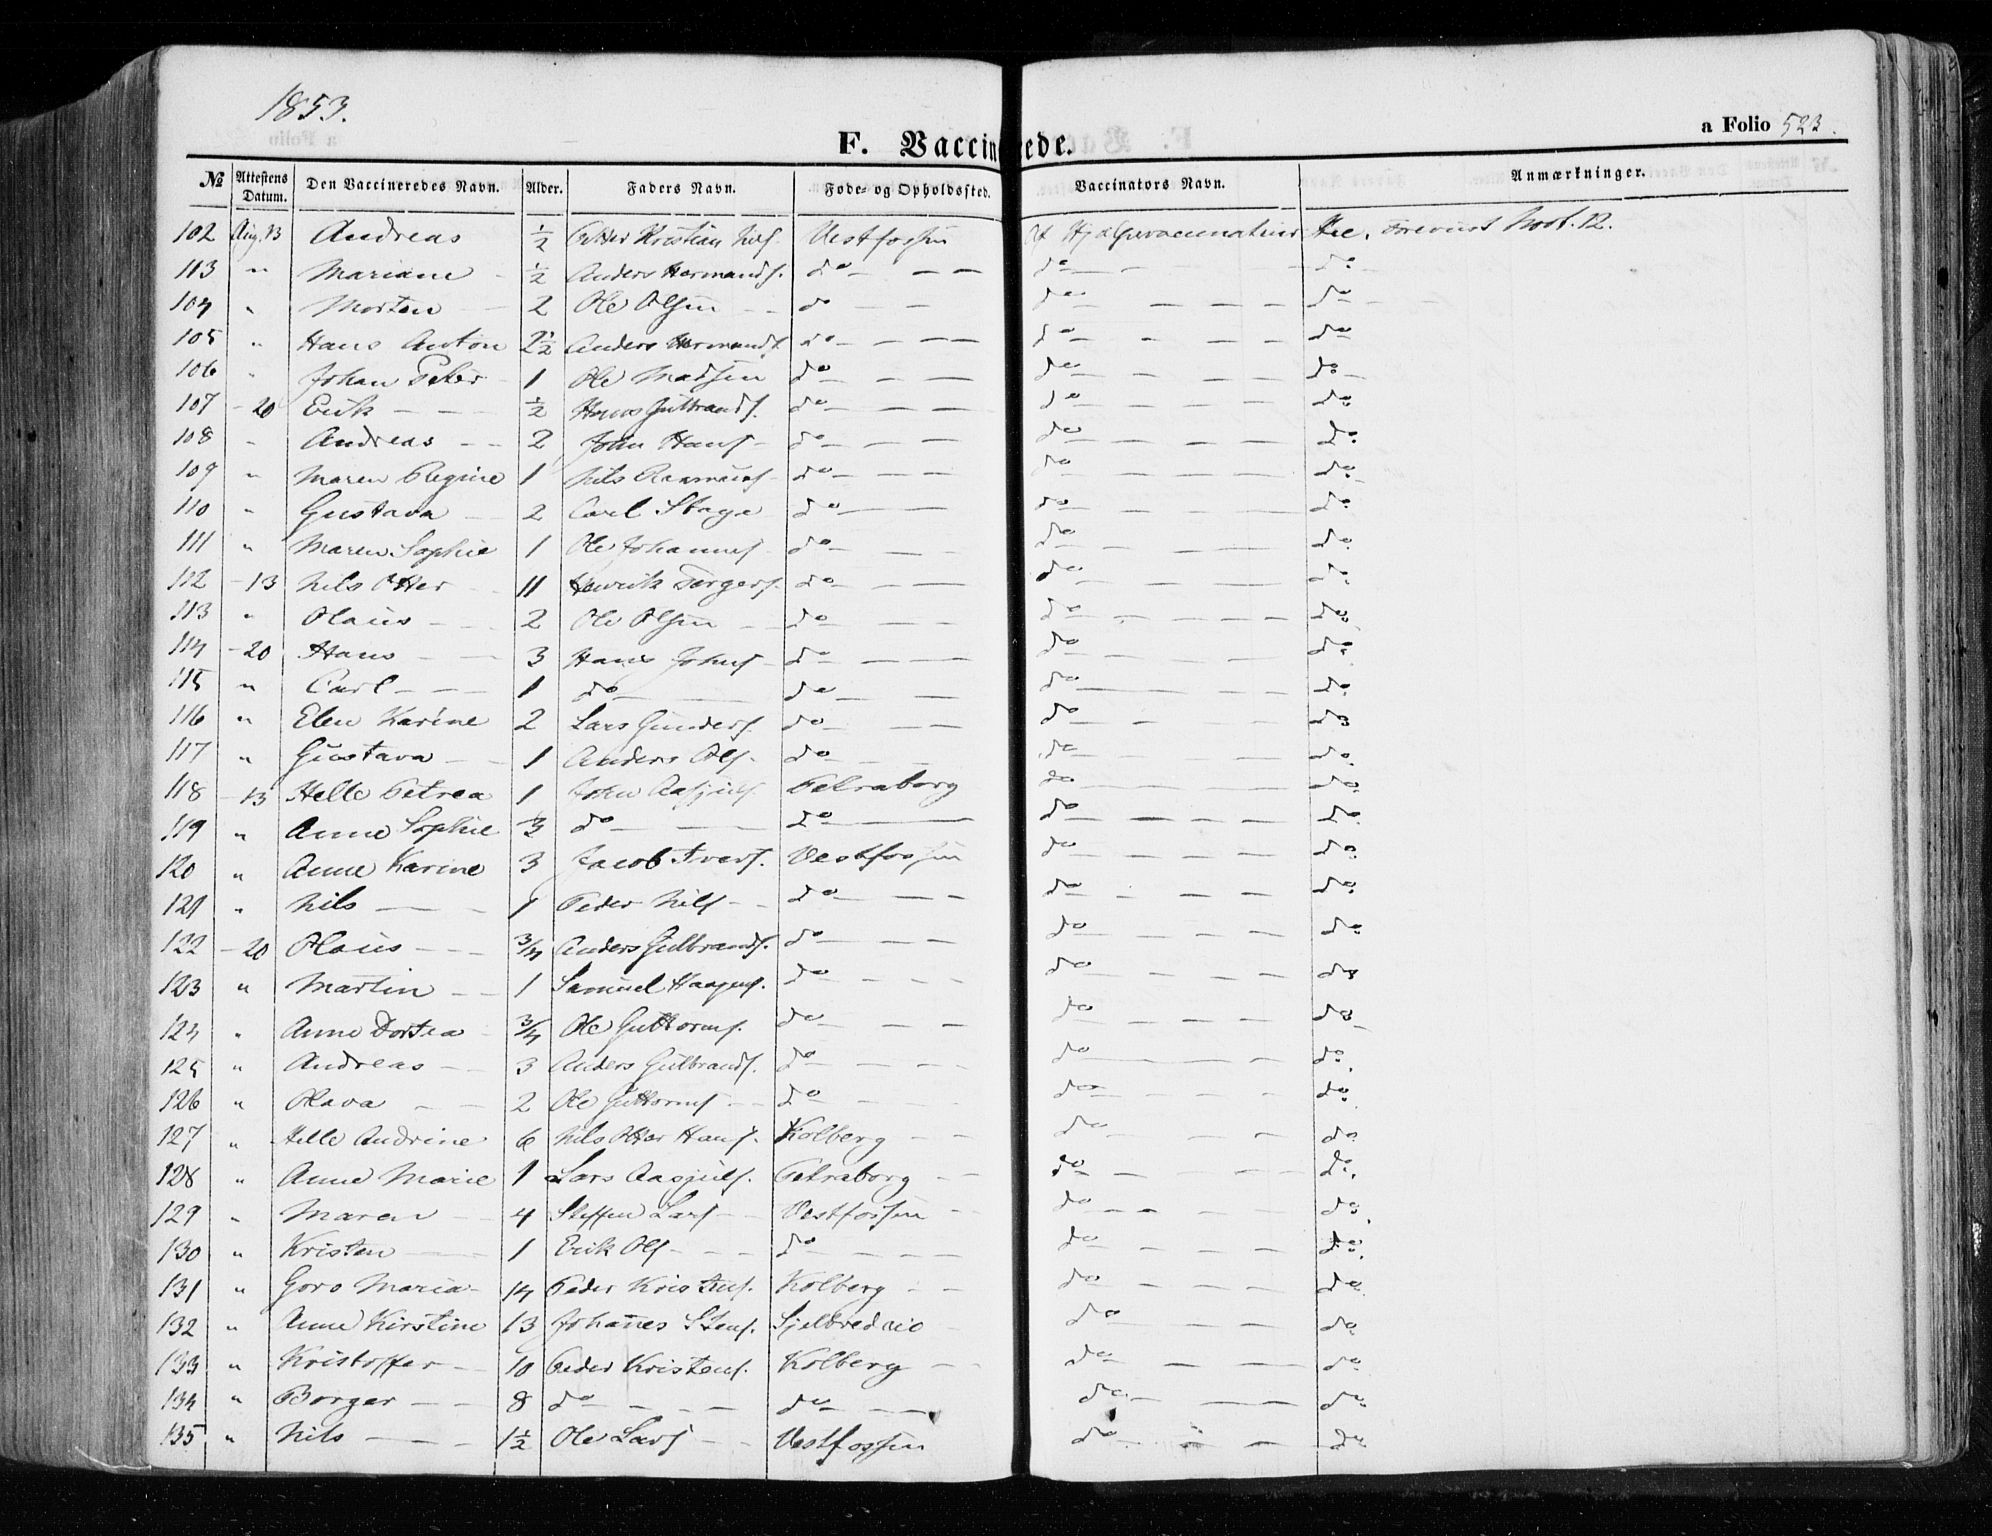 1853.
a Folio 523.
F. Vaccinerede.
№ Attestens Datum. Den Vaccineredes Navn. Alder. Faders Navn. Føde- og Opholdssted. Vaccinators Navn. Anmærkninger.
102 Aug. 13 Andreas ½ Otter Kristian Nils. Vestfossen Af Hjælpevaccinatøren
113 " Mariane ½ Anders Hermands. do do do
104 " Morten 2 Ole Olsen do do do
105 " Hans Anton 2½ Anders Hermands. do do do
106 " Johan Peter 1 Ole Madsen do do do
107 - 20 Erik ½ Hans Gulbrands. do do do
108 " Andreas 2 John Hans. do do do
109 " Maren Regine 1 Nils Rasmus. do do do
110 " Gustava 2 Carl Stage do do do
111 " Maren Sophie 1 Ole Johannes. do do do
112 - 13 Nils Otter 11 Henrik Torgers. do do do
113 " Olaus 2 Ole Olsen do do do
114 - 20 Hans 3 Hans Johns. do do do
115 " Carl 1 do do do do
116 " Elen Karine 2 Lars Gunders. do do do
117 " Gustava 1 Anders Ols. do do do
118 - 13 Helle Petrea 1 John Aasjuls. Petraborg do do
119 " Anne Sophie ½ do do do do
120 " Anne Karine 3 Jacob Ivers. Vestfossen do do
121 " Nils 1 Peder Nils. do do do
122 - 20 Olaus ¾ Anders Gulbrands. do do do
123 " Martin 1 Samuel Haagens. do do do
124 " Anne Dortea ¾ Ole Guttorms. do do do
125 " Andreas 3 Anders Gulbrands. do do do
126 " Olava 2 Ole Guttorms. do do do
127 " Helle Andrine 6 Nils Otter Hans. Kolberg do do
128 " Anne Marie 1 Lars Aasjuls. Petraborg do do
129 " Maren 4 Steffen Lars. Vestfossen do do
130 " Kristen 1 Erik Ols. do do do
131 " Goro Maria 14 Peder Kristens. Kolberg do do
132 " Anne Kirstine 13 Johanes Stens. do do
133 " Kristoffer 10 Peder Kristens. Kolberg do do
134 " Borger 8 do do do do
135 " Nils 1½ Ole Lars. Vestfossen do do